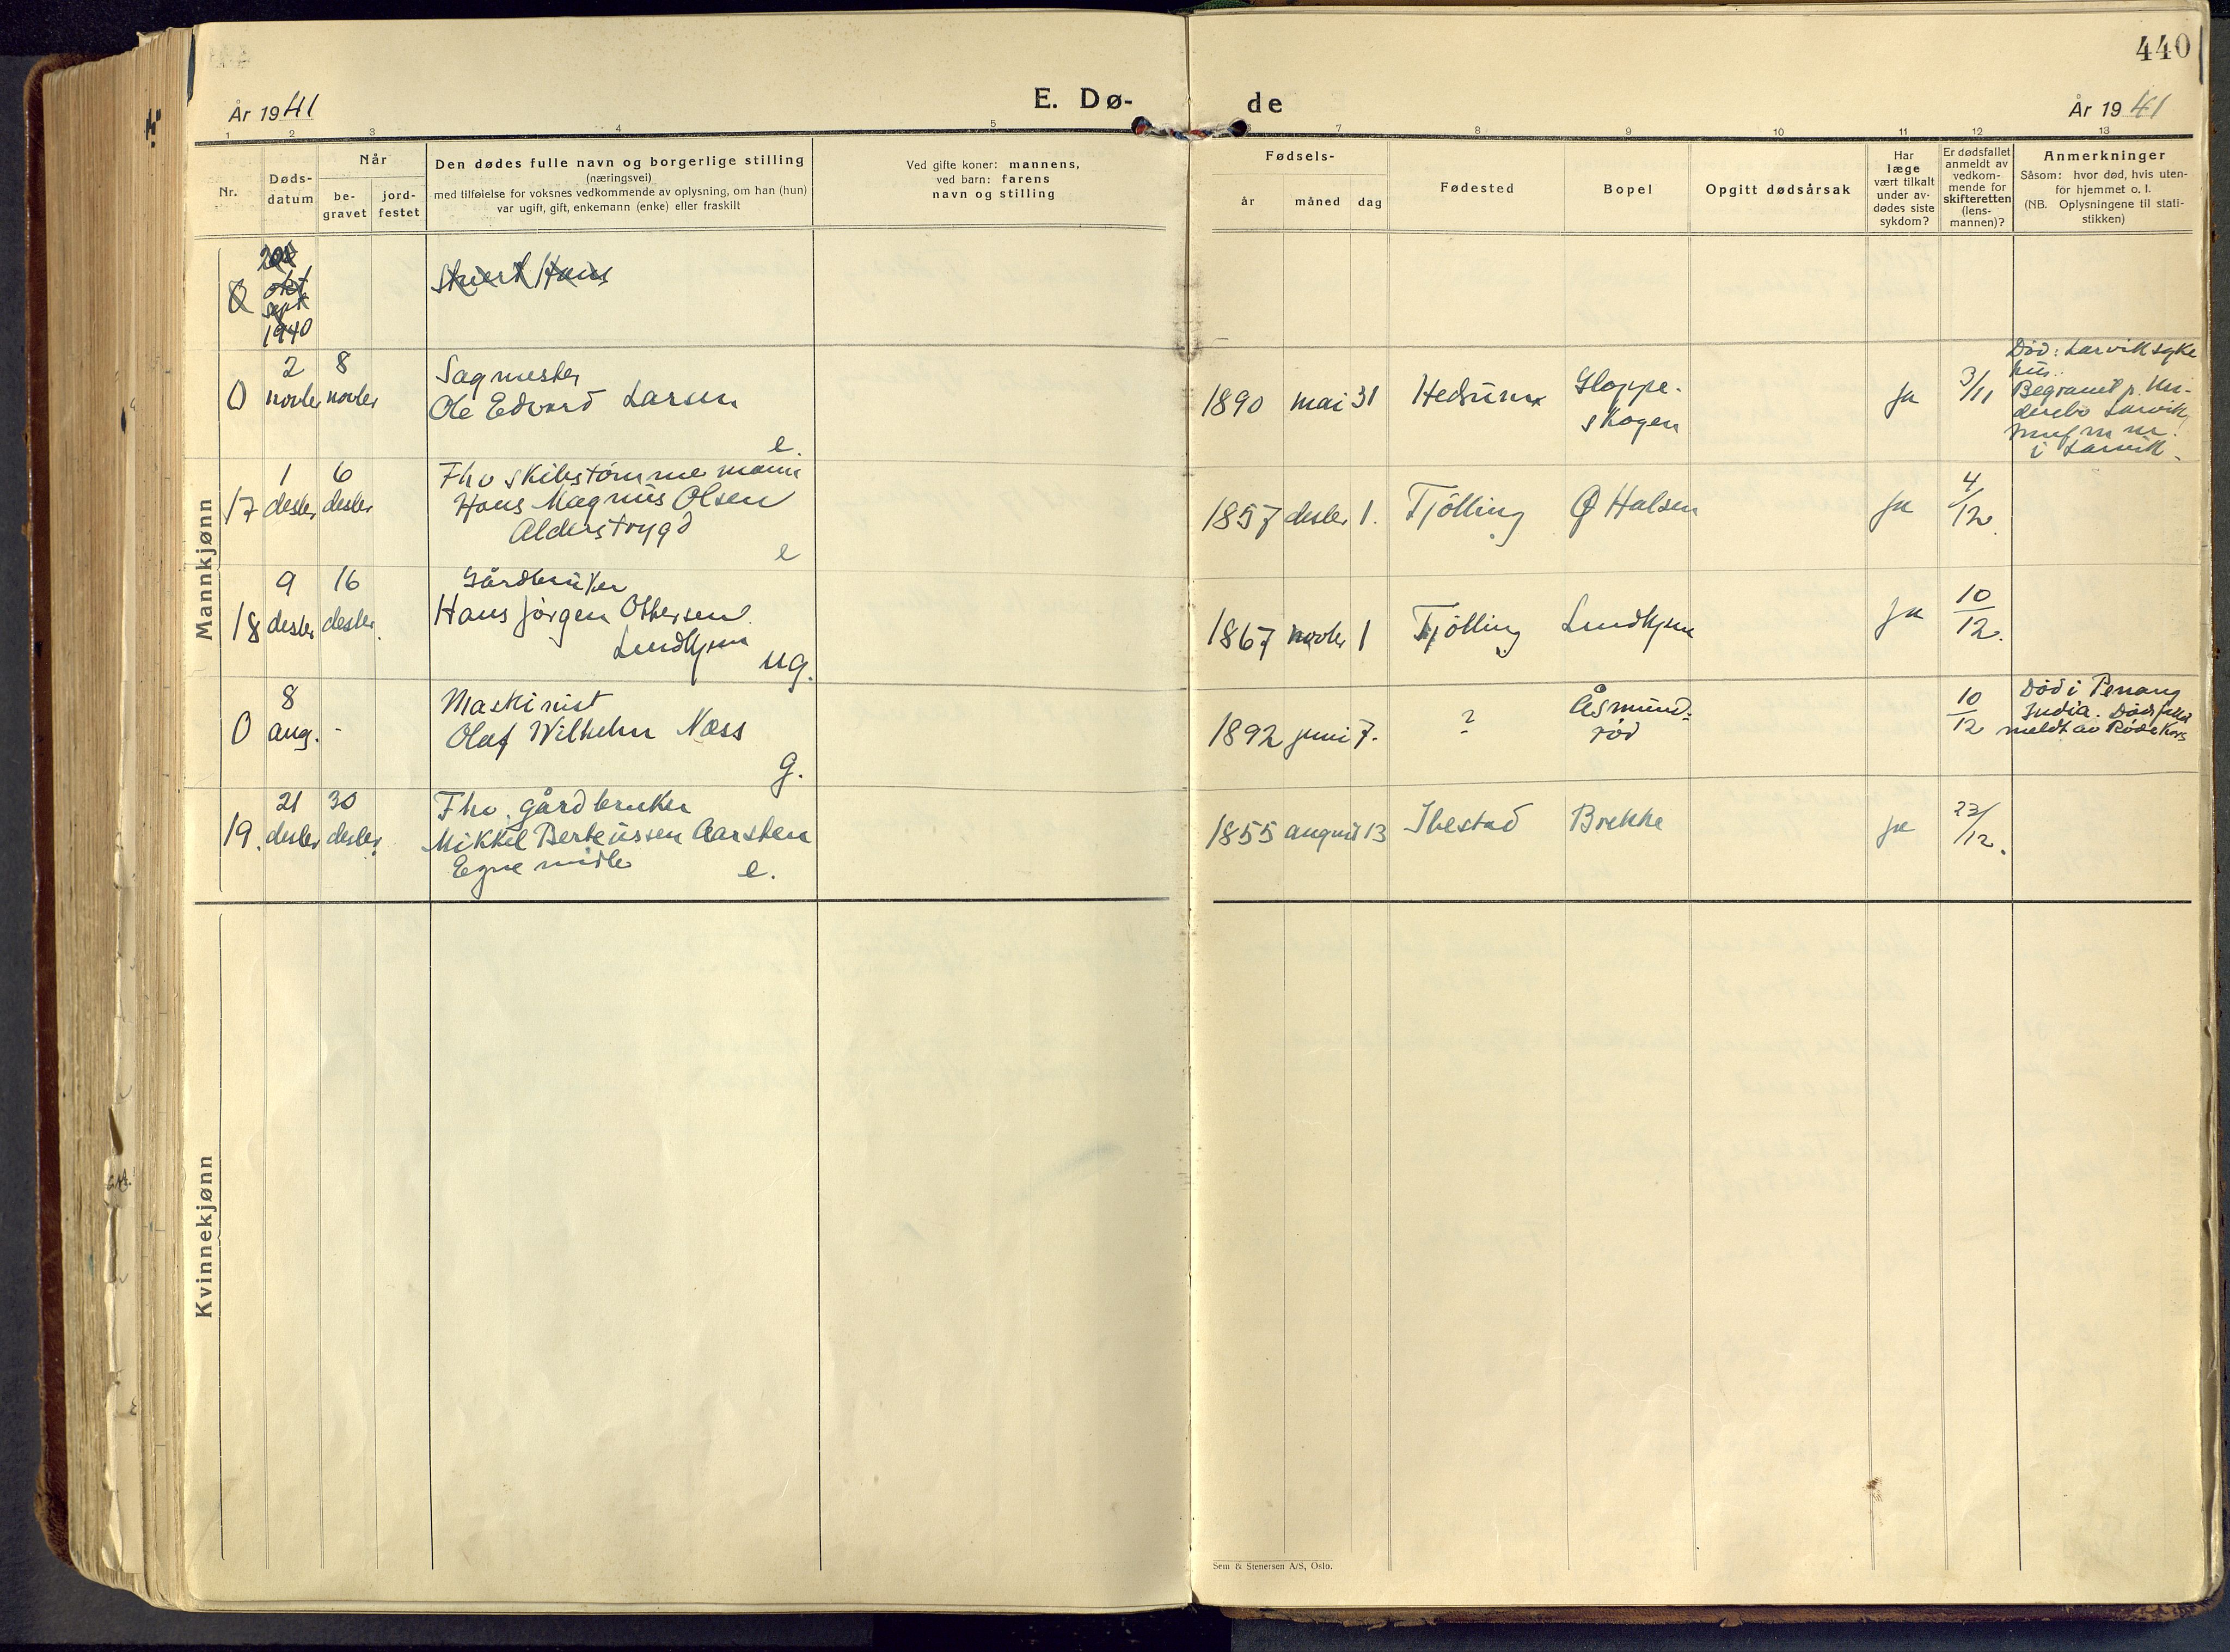 440
År 1941
E. Dø-
de
År 1941
1 2 3 4 5
7 8 9 10 11 12 13
Nr.
Døds-
datum
Når
be-
gravet
jord-
festet
Den dødes fulle navn og borgerlige stilling
(næringsvei)
med tilføielse for voksnes vedkommende av oplysning, om han (hun)
var ugift, gift, enkemann (enke) eller fraskilt
Ved gifte koner: mannens,
ved barn: farens
navn og stilling
Fødsels-
år måned dag
Fødested
Bopel
Opgitt dødsårsak
Har
læge
vært tilkalt
under av-
dødes siste
sykdom?
Er dødsfallet
anmeldt av
vedkom-
mende for
skifteretten
(lens-
mannen)?
Anmerkninger
Såsom: hvor død, hvis uten-
for hjemmet o. l.
(NB. Oplysningene til stati-
stikken)
Mannkjønn
0
okt
sept
1940
Hans
0
2 novbr
8 novbr
Sagmester
Ole Edvard Larsen
e.
1890 mai 31
Hedrum
Gloppe-
skogen
ja
3/11
Død: Larvik syke
hus.
Begravet p.
Larvik
i Larvik.
17
1 desbr
6 desbr
Fhv skibstømmemann
Hans Magnus Olsen
Alderstrygd
e
1857 desbr 1.
Tjölling
Ø Halsen
ja
4/12.
18
9 desbr
16 desbr.
Gårdbruker
Hans Jörgen Othersen
Lindhjem
ug.
1867 novbr 1
Tjölling
Lindhjem
ja
10/12.
0
8 aug.
-
Maskinist
Olaf Wilhelm Næss
g.
1892 juni 7.
?
Åsmund-
rød
10/12
Død i Penang
India. Dødsfallet
meldt av Røde Kors
19.
21 desbr
30 desbr.
Fhv. gårdbruker
Mikkel Berteussen Aarsten
Egne midle
e.
1855 august 13
Ibestad
Brekke
ja
23/12.
Kvinnekjønn
Sem & Stenersen A/S, Oslo.